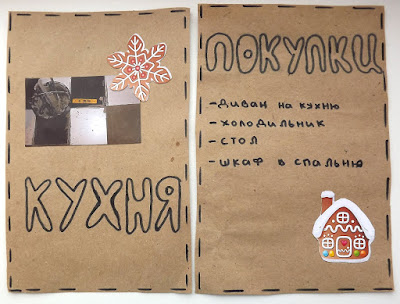 КУХНЯ
ПОКУПКИ
-ДИВАН НА КУХНЮ
-ХОЛОДИЛЬНИК
-СТОЛ
-ШКАФ В СПАЛЬНЮ